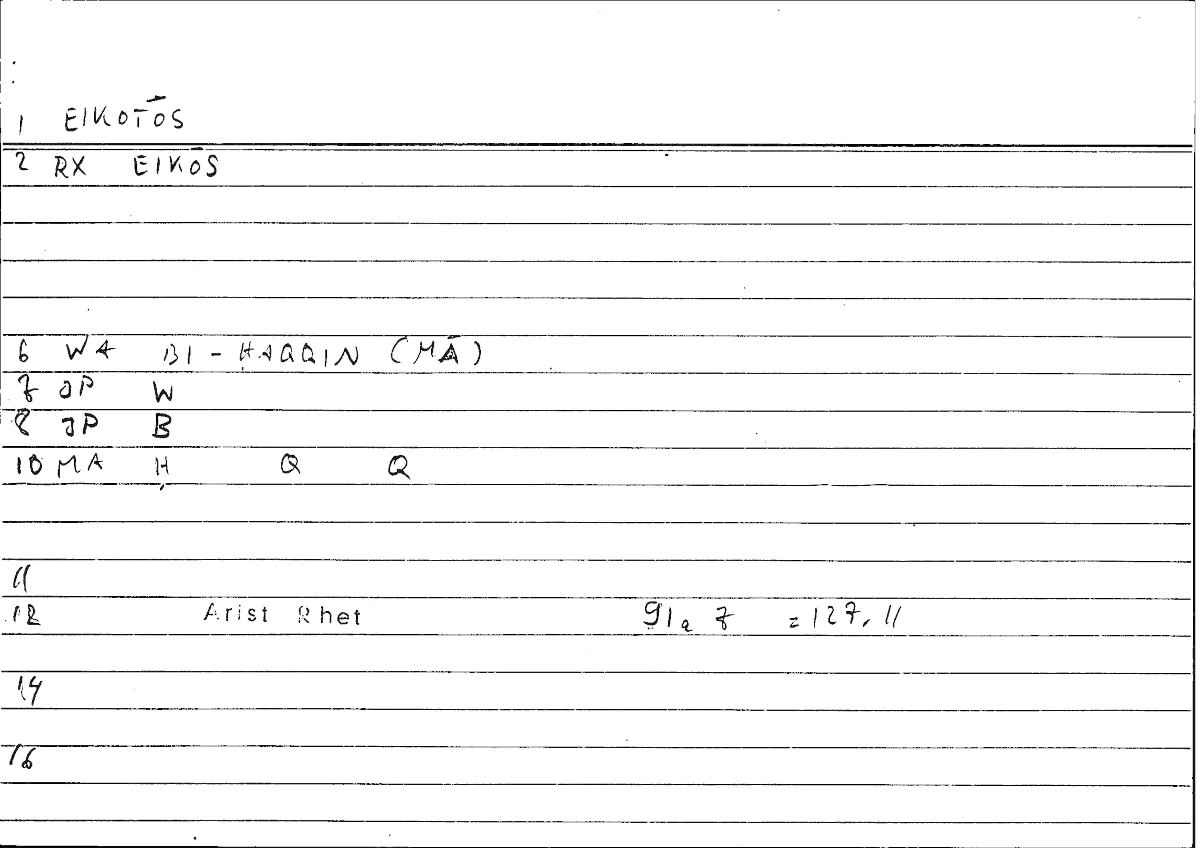 1 EIKOTŌS
2 RX EIKŌS
6 WA BI - ḤAQQIN (MĀ)
7 JP W
8 JP B
10 MA Ḥ Q Q
11
12 Arist Rhet 91a 7 = 127, 11
14
16